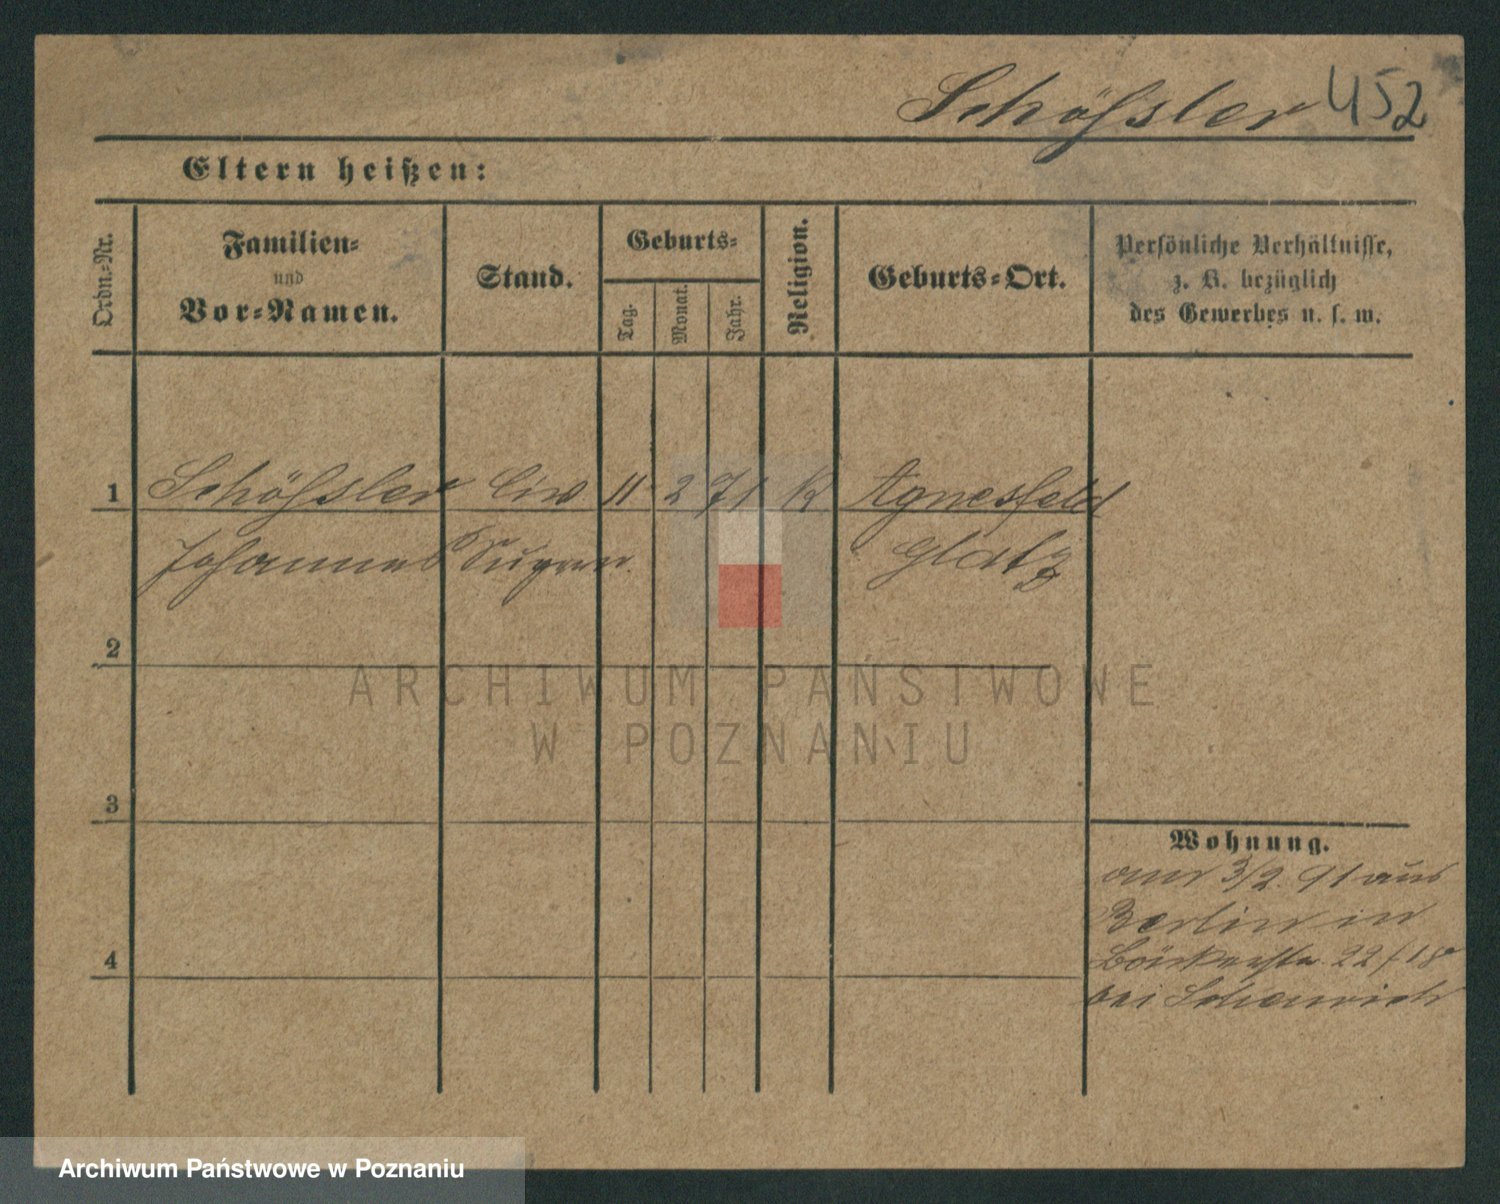 Schößler 452
Eltern heißen:
Ordn.-Nr.
Familien-
und
Vor-Namen.
Stand.
Geburts-
Tag.
Monat.
Jahr.
Religion.
Geburts-Ort.
Persönliche Verhältnisse,
z. B. bezüglich
des Gewerbes u. s. w.
1 Schößler Civ 11 2 71 K Agnesfeld
Johannes Supern. Glatz
2
3
4
Wohnung.
am 3/2. 91 aus
Berlin in
22/18
bei
ARCHIWUM PAŃSTWOWE
W POZNANIU
Archiwum Państwowe w Poznaniu